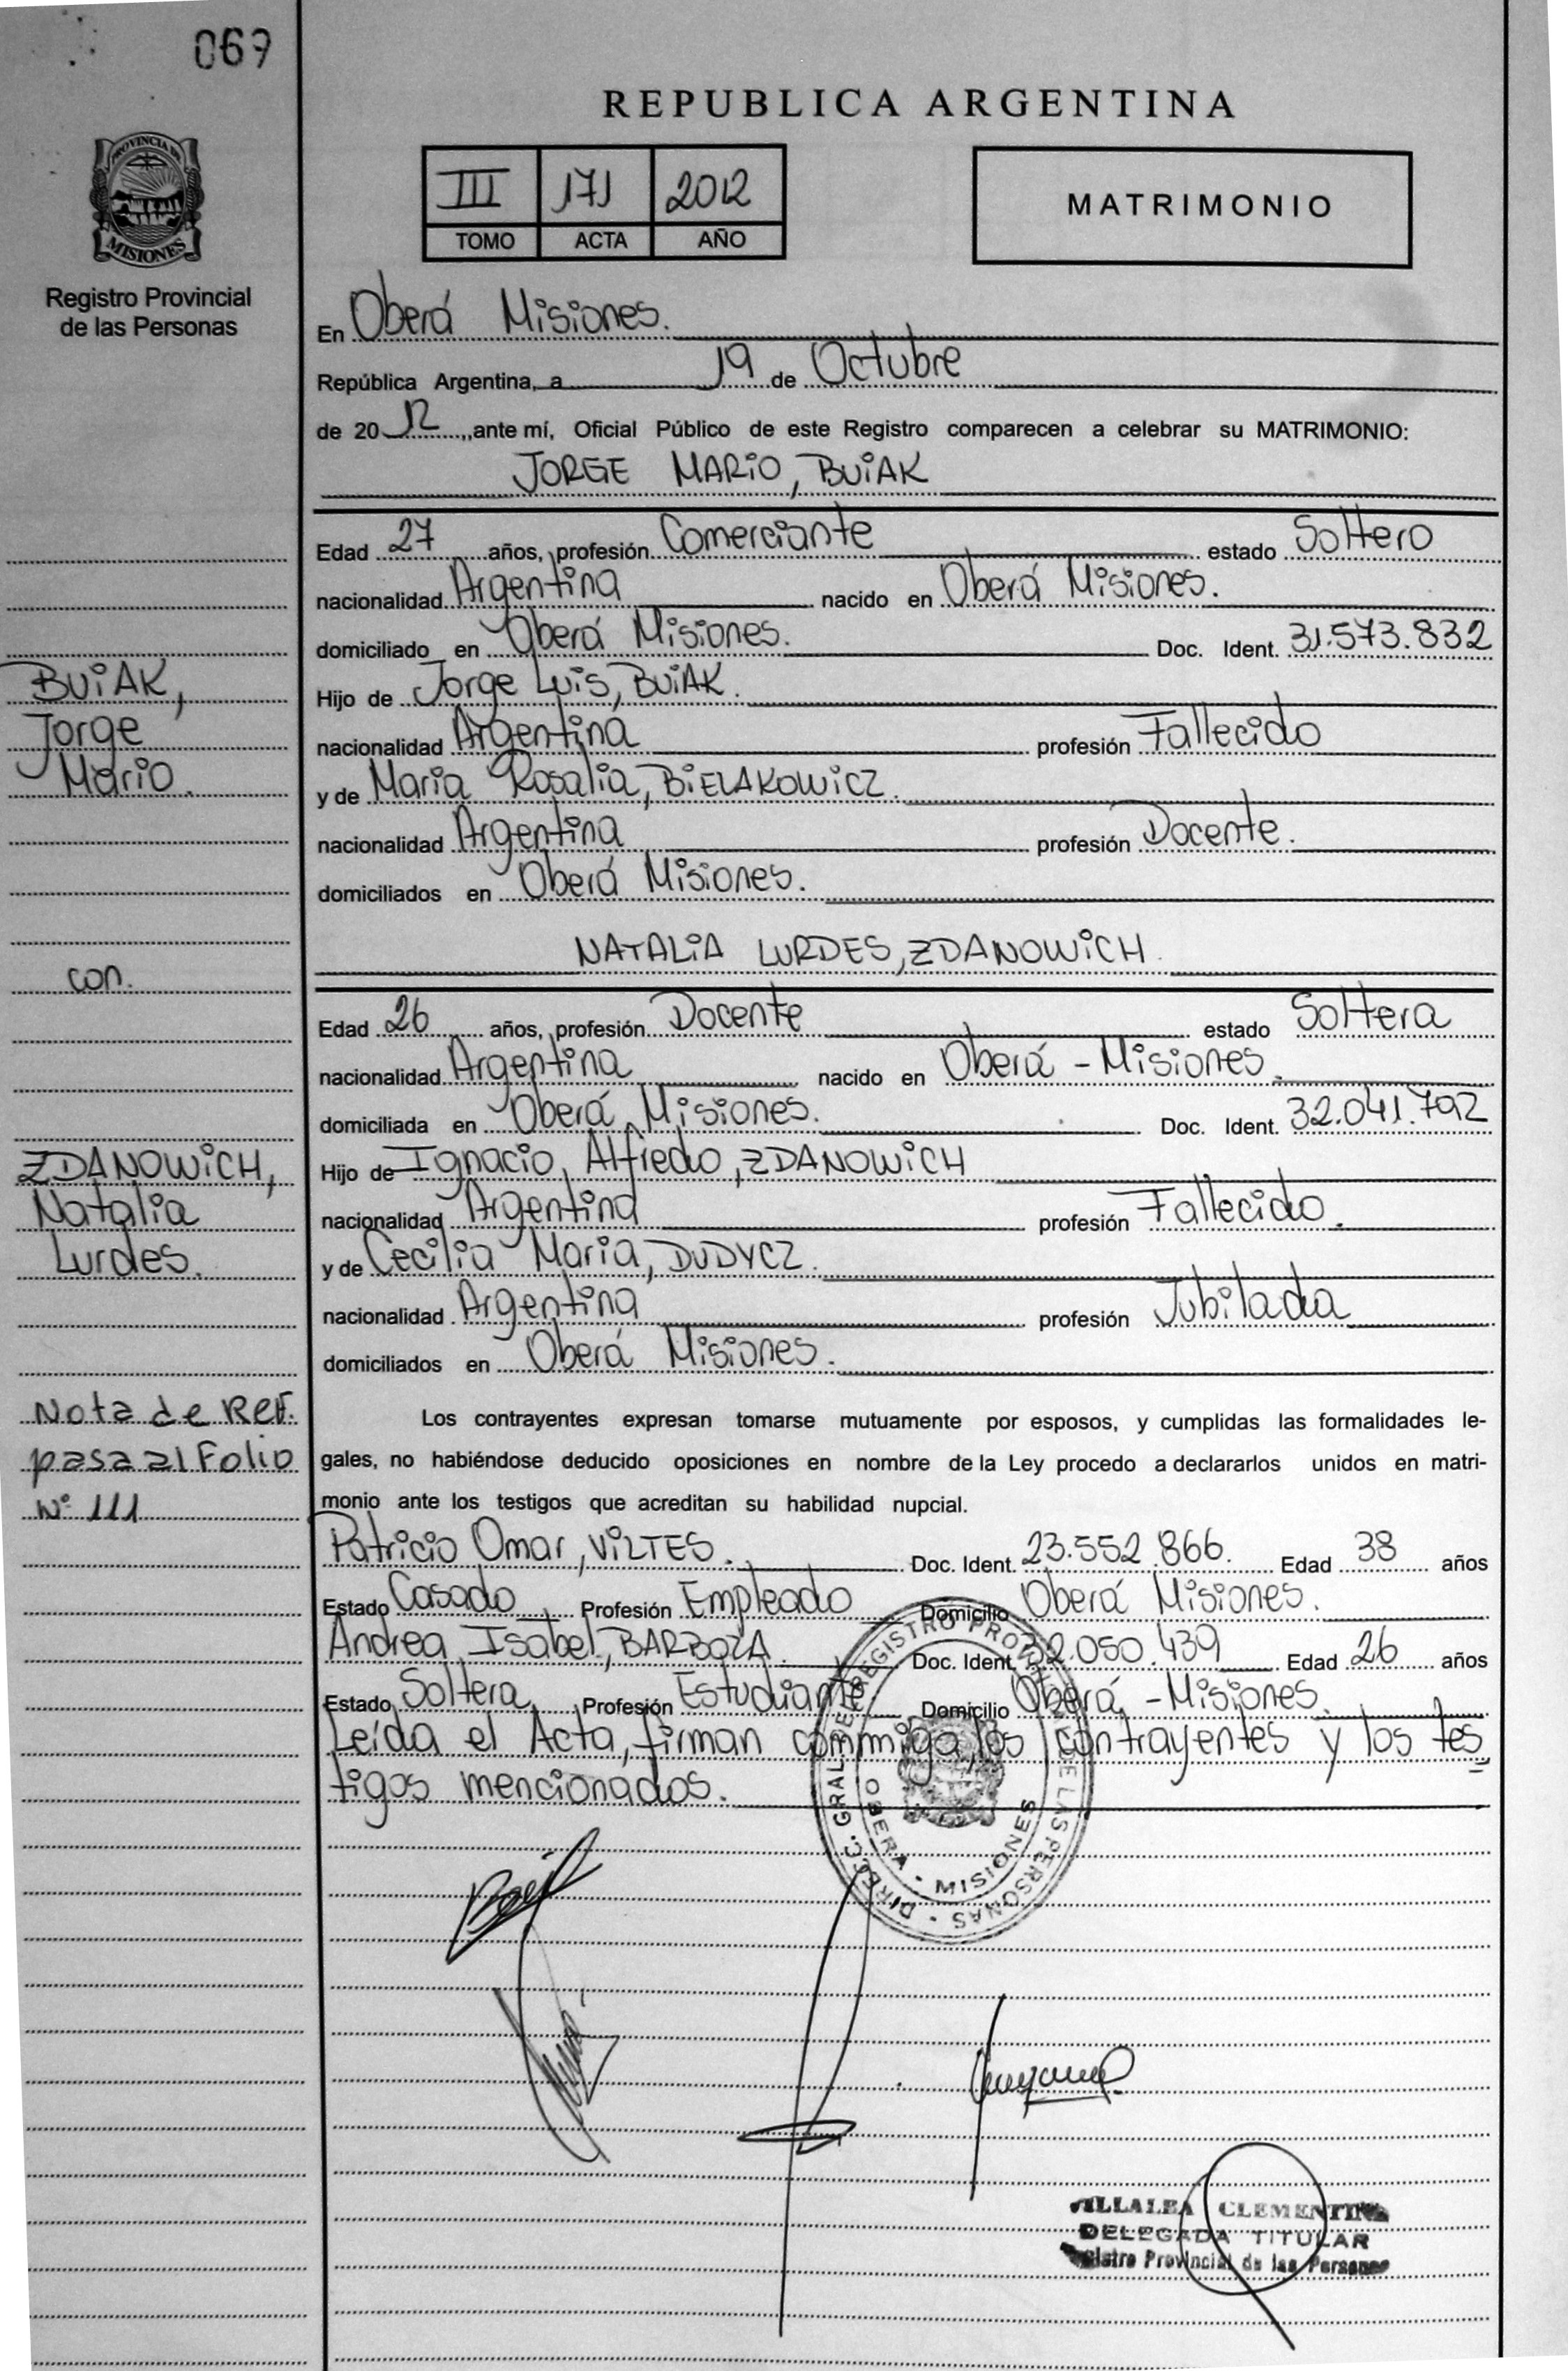 069
REPUBLICA ARGENTINA
PROVINCIA DE
MISIONES
Registro Provincial
de las Personas
III 171 2012
TOMO ACTA AÑO
MATRIMONIO
En Oberá Misiones.
República Argentina, a 19 de Octubre
de 20 12 ,,ante mí, Oficial Público de este Registro comparecen a celebrar su MATRIMONIO:
JORGE MARIO, BUIAK
Edad 27 años, profesión Comerciante estado Soltero
nacionalidad Argentina nacido en Oberá Misiones.
domiciliado en Oberá Misiones. Doc. Ident. 31.573.832
BUIAK,
Jorge
Mario.
Hijo de Jorge Luis, BUIAK.
nacionalidad Argentina profesión Fallecido
y de Maria Rosalia, BIELAKOWICZ.
nacionalidad Argentina profesión Docente.
domiciliados en Oberá Misiones.
con.
NATALIA LURDES, ZDANOWICH.
Edad 26 años, profesión Docente estado Soltera
nacionalidad Argentina nacido en Oberá - Misiones.
domiciliada en Oberá Misiones. Doc. Ident. 32.041.792
ZDANOWICH,
Natalia
Lurdes.
Hijo de Ignacio Alfredo, ZDANOWICH
nacionalidad Argentina profesión Fallecido.
y de Cecilia Maria, DUDYCZ.
nacionalidad Argentina profesión Jubilada
domiciliados en Oberá Misiones.
Nota de Ref.
pasa al Folio
N° 111
Los contrayentes expresan tomarse mutuamente por esposos, y cumplidas las formalidades le-
gales, no habiéndose deducido oposiciones en nombre de la Ley procedo a declararlos unidos en matri-
monio ante los testigos que acreditan su habilidad nupcial.
Patricio Omar, VILTES. Doc. Ident. 23.552.866. Edad 38 años
Estado Casado Profesión Empleado Domicilio Oberá Misiones.
Andrea Isabel, BARBOZA. Doc. Ident. 32.050.439 Edad 26 años
Estado Soltera Profesión Estudiante Domicilio Oberá - Misiones.
Leída el Acta, firman conmigo, los contrayentes y los tes
tigos mencionados.
DIREC. GRAL. DEL REGISTRO PROVINCIAL DE LAS PERSONAS
OBERA - MISIONES
CLEMENTINA
DELEGADA TITULAR
Registro Provincial de las Personas